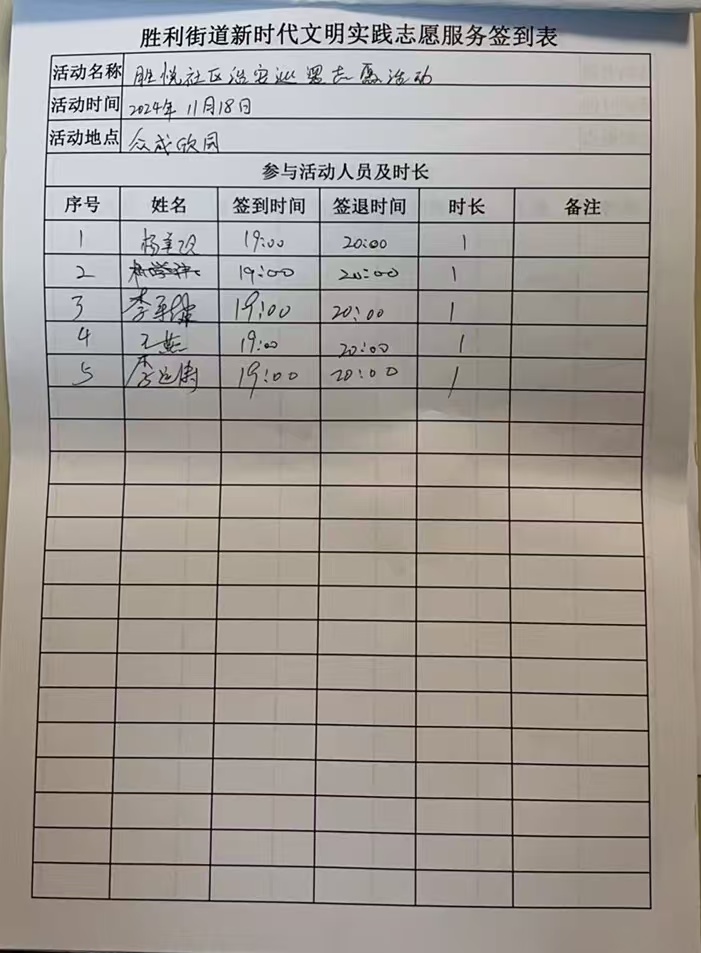 胜利街道新时代文明实践志愿服务签到表
活动名称 胜悦社区治安巡逻志愿活动
活动时间 2024年11月18日
活动地点 众成欣园
参与活动人员及时长
序号 姓名 签到时间 签退时间 时长 备注
1 19:00 20:00 1
2 19:00 20:00 1
3 李 19:00 20:00 1
4 王燕 19:00 20:00 1
5 李 19:00 20:00 1